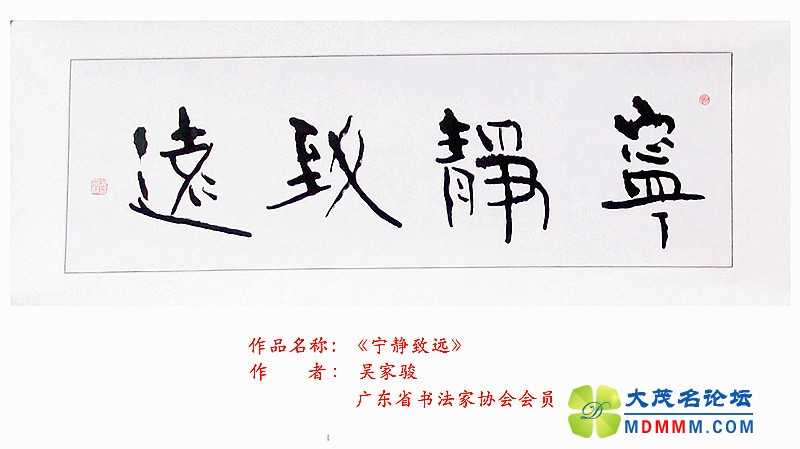 寧靜致遠
作品名称：《宁静致远》
作　　者：吴家骏
广东省书法家协会会员
大茂名论坛
MDMMM.COM